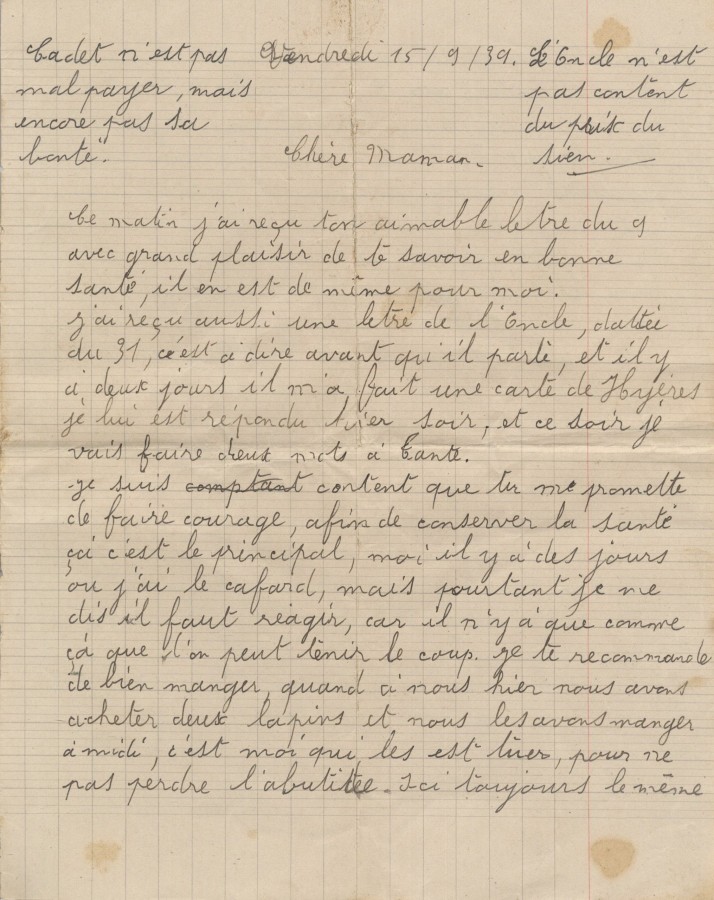 Cadet n'est pas
mal payer, mais
encore pas sa
bonté".
Vendredi 15/9/39.
L'Oncle n'est
pas content
du prix du
sien.
Chère Maman.
Ce matin j'ai reçu ton aimable letre du 9
avec grand plaisir de te savoir en bonne
santé, il en est de même pour moi.
j'ai reçu aussi une letre de l'Oncle, dattée
du 31, c'est à dire avant qu'il parte, et il y
à deux jours il m'a frait une carte de Hyères
je lui est répondu hier soir, et ce soir je
vais faire deux mots à Tante.
Je suis comptant content que tu me promette
de faire courage, afin de conserver la santé
çà c'est le principal, moi il y à des jours
ou j'ai le cafard, mais pourtant je me
dis il faut réagir, car il n'y à que comme
çà que l'on peut tenir le coup. Je te recommande
de bien manger, quand à nous hier nous avons
acheter deux lapins et nous les avons manger
à midi, c'est moi qui les est tuer, pour ne
pas perdre l'abutitee. Ici toujours le même